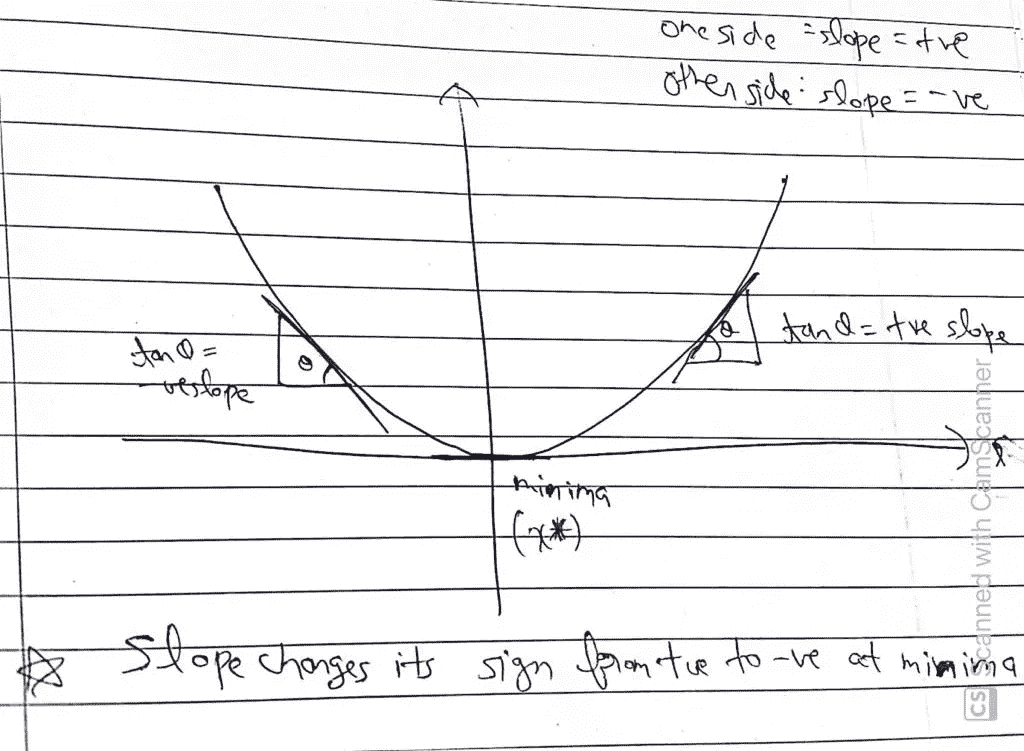 one side = slope = +ve
other side: slope = -ve
tan θ =
-ve slope
θ
θ
tan θ = +ve slope
x
minima
(x*)
☆ Slope changes its sign from +ve to -ve at minima
CS Scanned with CamScanner